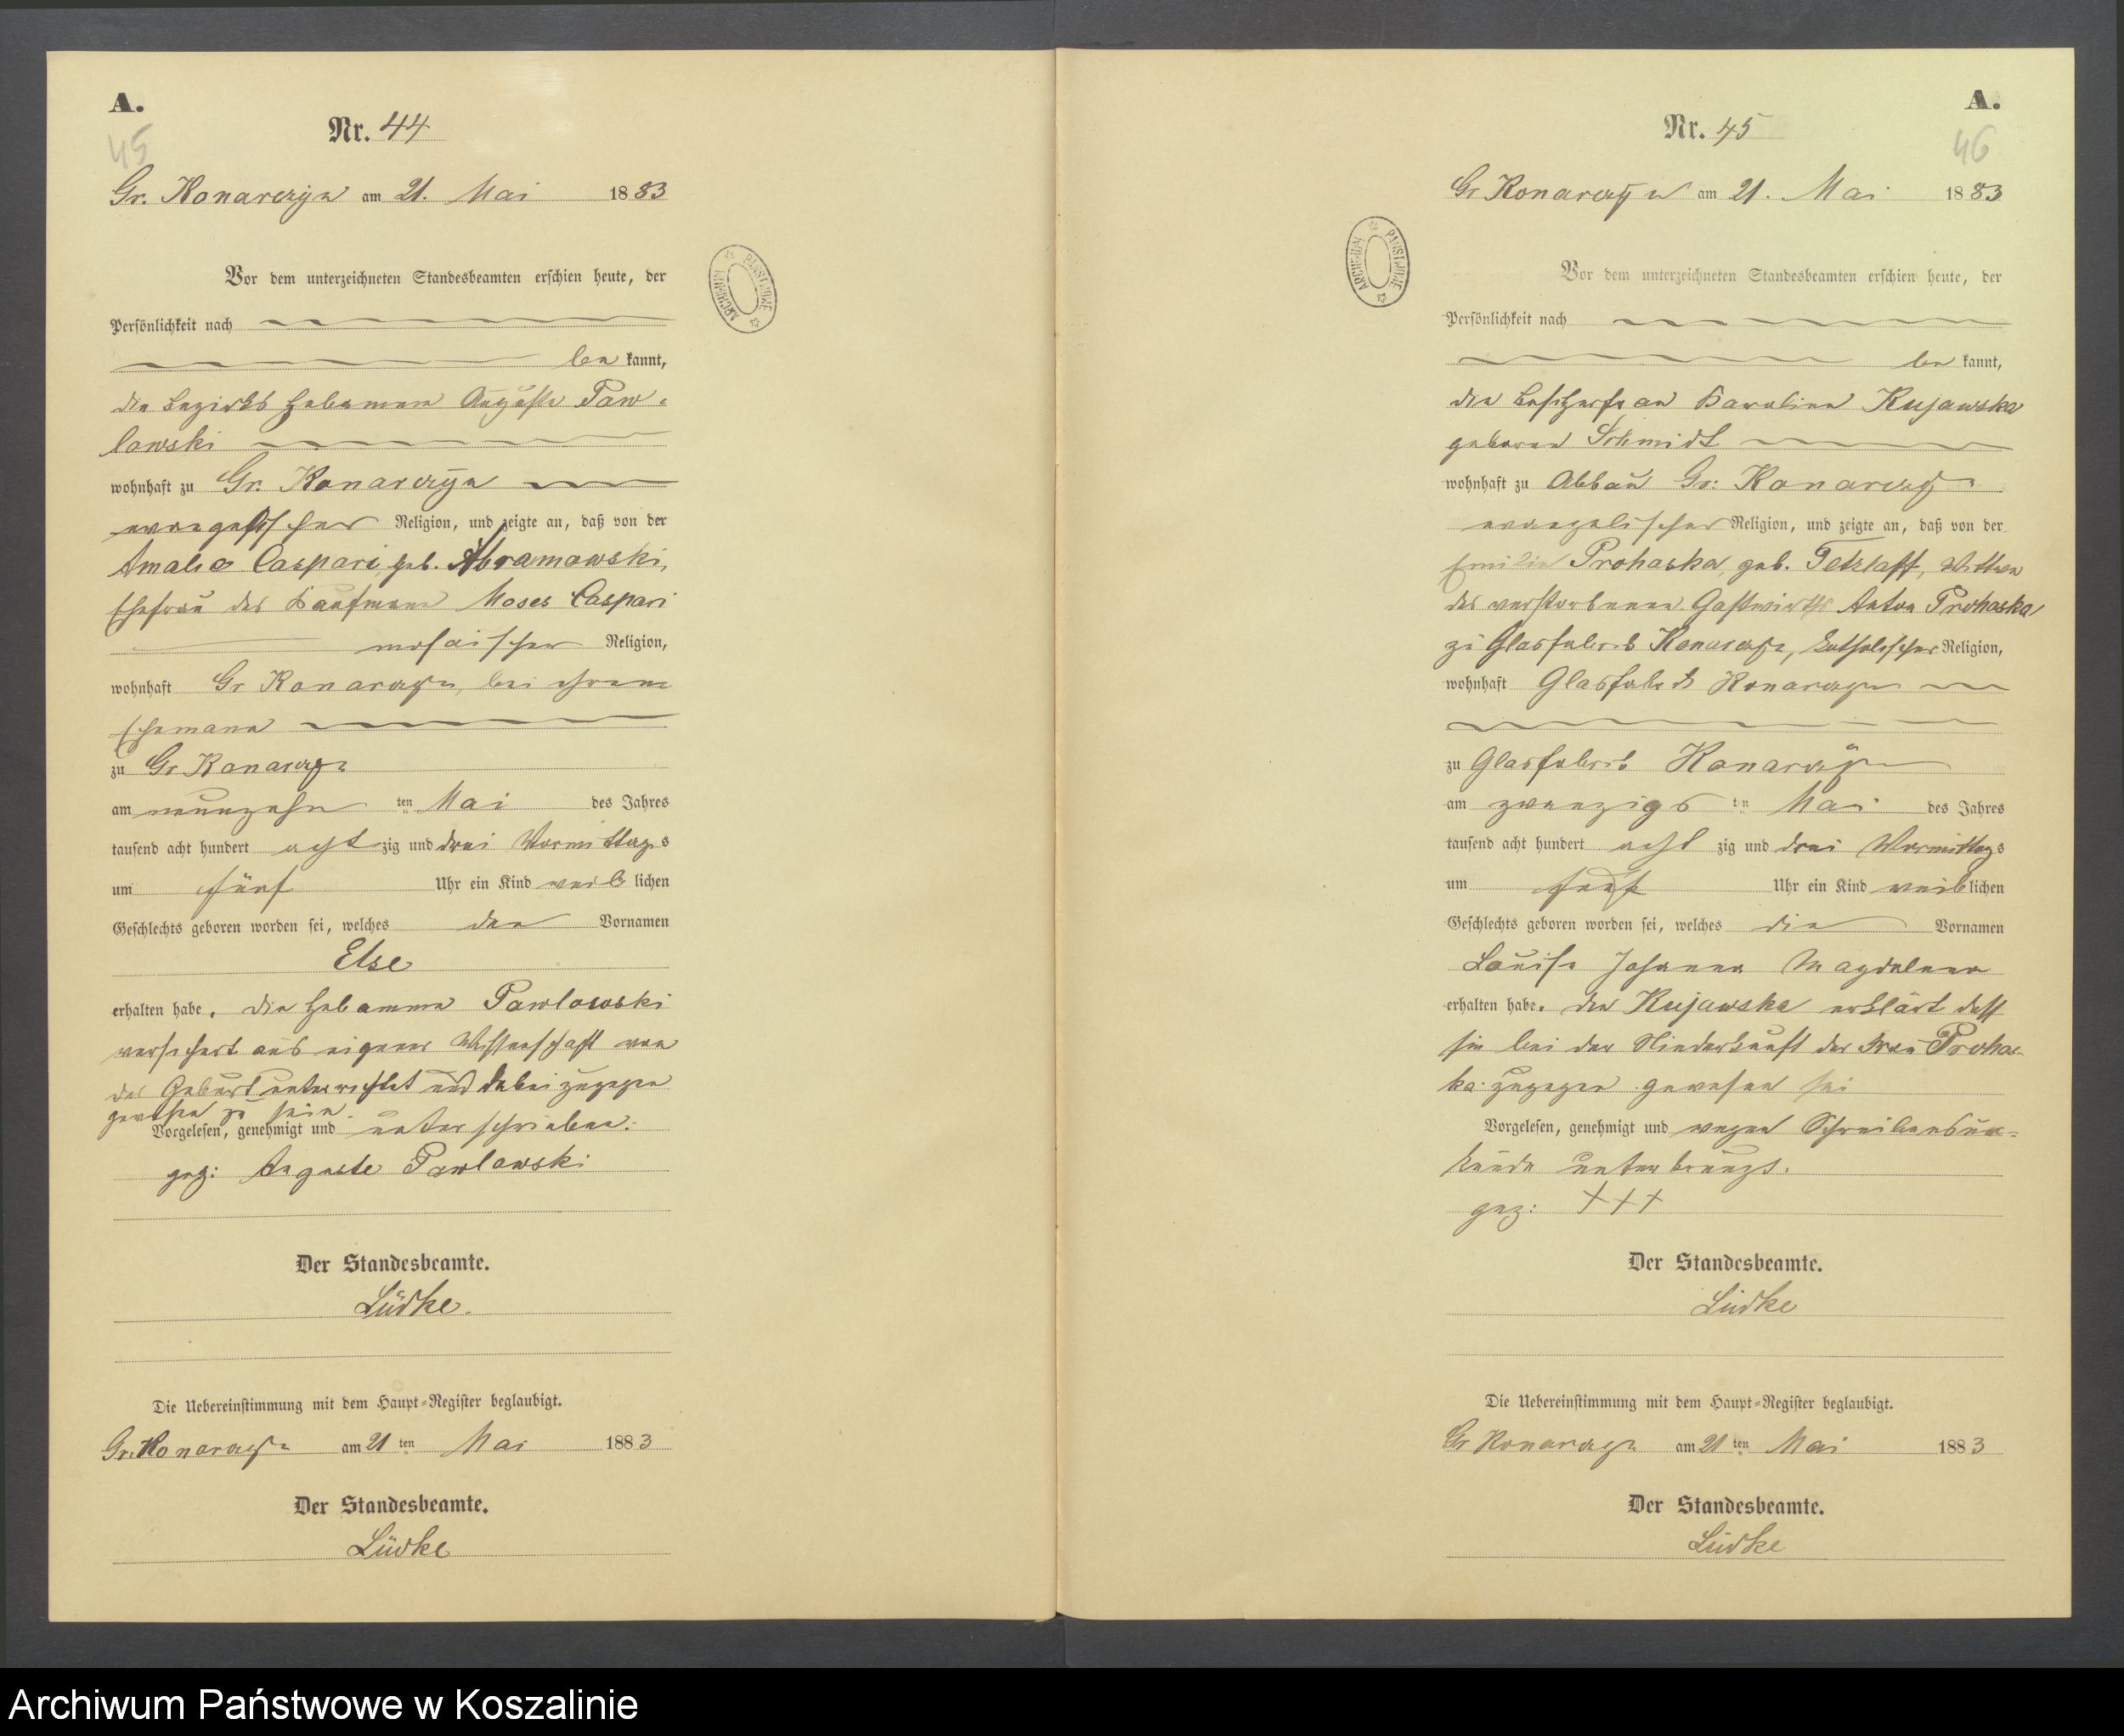 A.
45
Nr. 44
Gr. Konarczyn am 21. Mai 1883
Vor dem unterzeichneten Standesbeamten erschien heute, der
Persönlichkeit nach
bekannt,
die Bezirks Hebamme Auguste Paw-
lowski
wohnhaft zu Gr. Konarczyn
evangelischer Religion, und zeigte an, daß von der
Amalie Caspari, geb. Abramowski,
Ehefrau des Kaufmann Moses Caspari
mosaischer Religion,
wohnhaft Gr Konarczyn, bei ihrem
Ehemann
zu Gr Konarczyn
am neunzehn ten Mai des Jahres
tausend acht hundert achtzig und drei Vormittags
um fünf Uhr ein Kind weiblichen
Geschlechts geboren worden sei, welches den Vornamen
Else
erhalten habe. Die Hebamme Pawlowski
versichert aus eigener Wissenschaft von
der Geburt unterrichtet und dabei zugegen
gewesen zu sein.
Vorgelesen, genehmigt und unterschrieben.
gez: Auguste Pawlowski
Der Standesbeamte.
Lüdke.
Die Uebereinstimmung mit dem Haupt-Register beglaubigt.
Gr. Konarczyn am 21 ten Mai 1883
Der Standesbeamte.
Lüdke
ARCHIWUM PAŃSTWOWE
A.
46
Nr. 45
Gr Konarczyn am 21. Mai 1883
Vor dem unterzeichneten Standesbeamten erschien heute, der
Persönlichkeit nach
bekannt,
die Besitzerfrau Karoline Kujawska
geboren Schmidt
wohnhaft zu Abbau Gr: Konarczyn
evangelischer Religion, und zeigte an, daß von der
Emilie Prohaska, geb. Tetzlaff, Wittwe
des verstorbenen Gastwirths Anton Prohaska
zu Glasfabrik Konarczyn, katholischer Religion,
wohnhaft Glasfabrik Konarczyn
zu Glasfabrik Konarczyn
am zwanzigs ten Mai des Jahres
tausend acht hundert acht zig und drei Vormittags
um fünf Uhr ein Kind weiblichen
Geschlechts geboren worden sei, welches die Vornamen
Louise Johanna Magdalena
erhalten habe. Die Kujawska erklärt daß
sie bei der Niederkunft der Frau Prohas-
ka zugegen gewesen sei
Vorgelesen, genehmigt und wegen Schreibensun-
kunde unterkreuzt.
gez: +++
Der Standesbeamte.
Lüdke
Die Uebereinstimmung mit dem Haupt-Register beglaubigt.
Gr Konarczyn am 21 ten Mai 1883
Der Standesbeamte.
Lüdke
ARCHIWUM PAŃSTWOWE
Archiwum Państwowe w Koszalinie